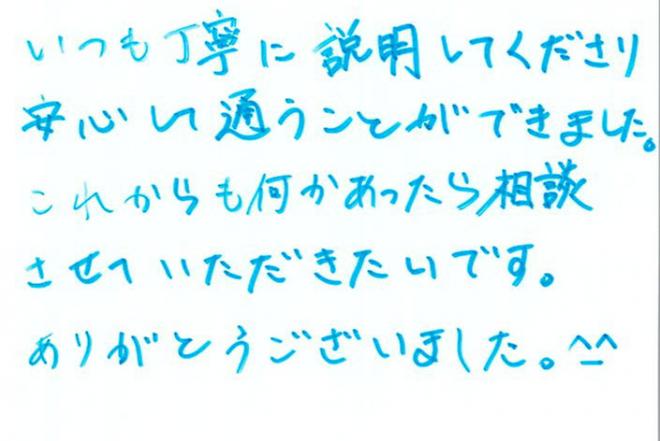 いつも丁寧に説明してくださり
安心して通うことができました。
これからも何かあったら相談
させていただきたいです。
ありがとうございました。^_^